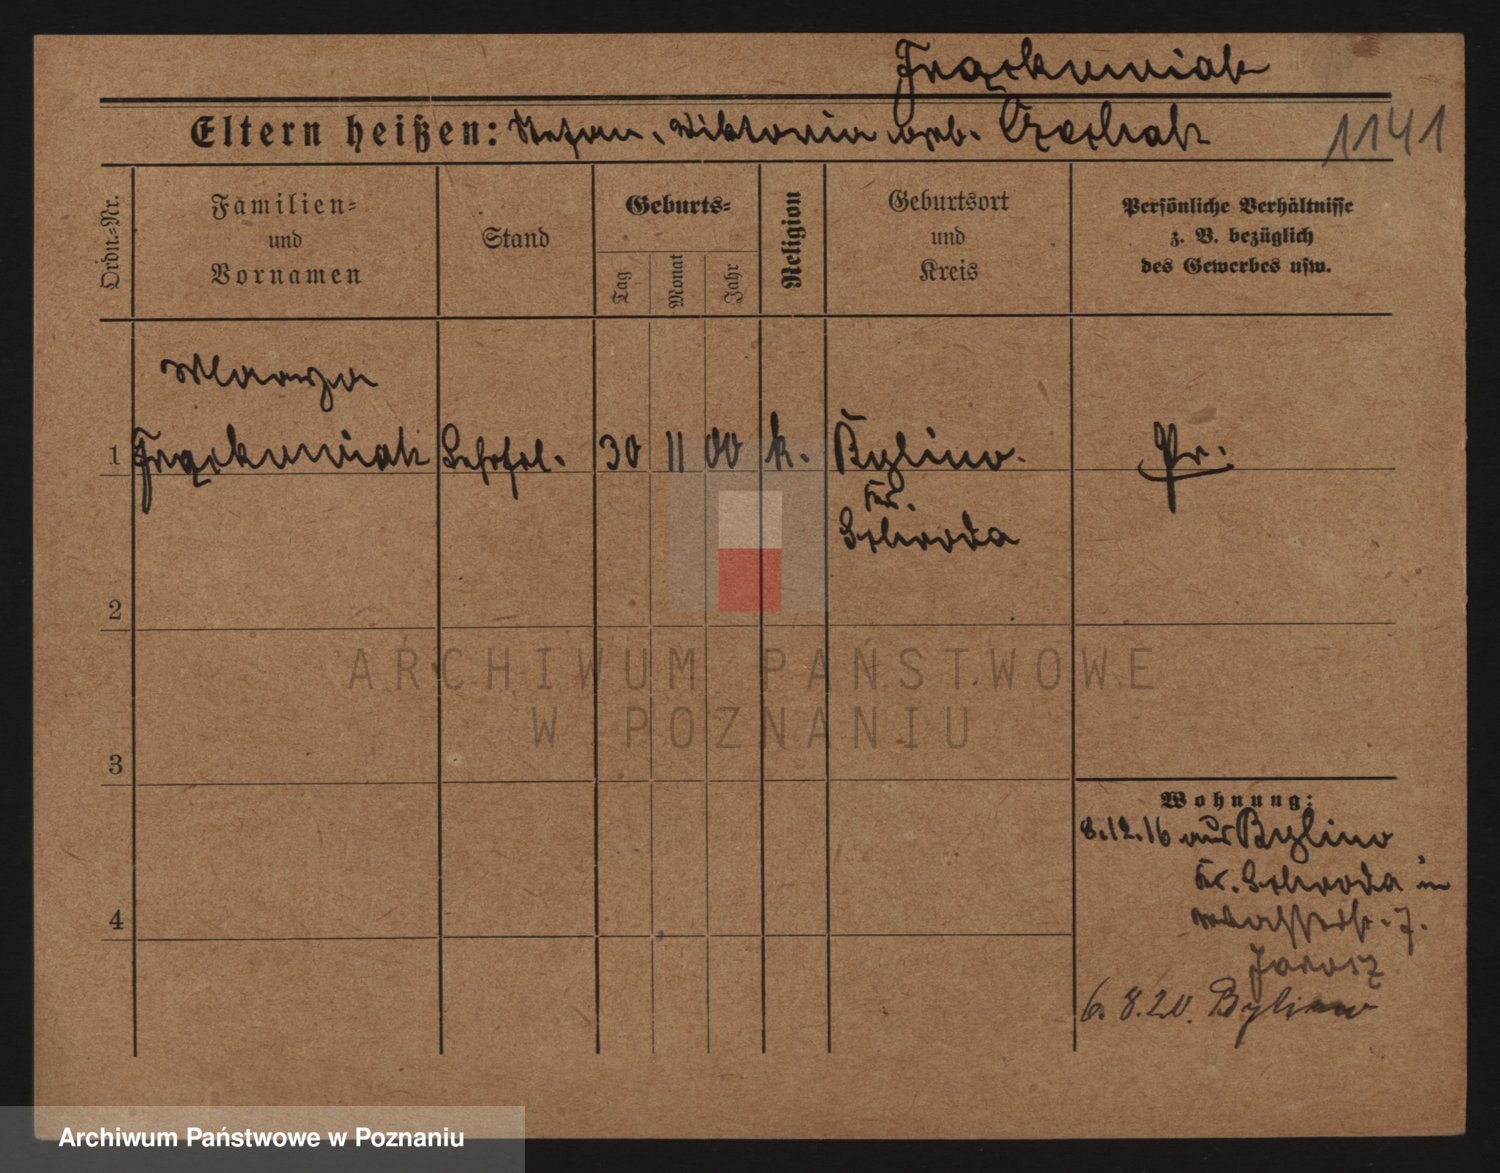 Frąckowiak
Eltern heißen: Stefan, Wiktoria geb.
1141
Ordn.-Nr.
Familien-
und
Vornamen
Stand
Geburts-
Tag
Monat
Jahr
Religion
Geburtsort
und
Kreis
Persönliche Verhältnisse
z. B. bezüglich
des Gewerbes usw.
1
Frąckowiak
30
11
00
k.
Bylino.
Kr.
Schroda
Pr.
2
3
4
Wohnung:
8.12.16 aus Bylino
Kr. Schroda in
Wasserstr. 7.
Jarosz
6.8.20. Bylino
ARCHIWUM PAŃSTWOWE
W POZNANIU
Archiwum Państwowe w Poznaniu